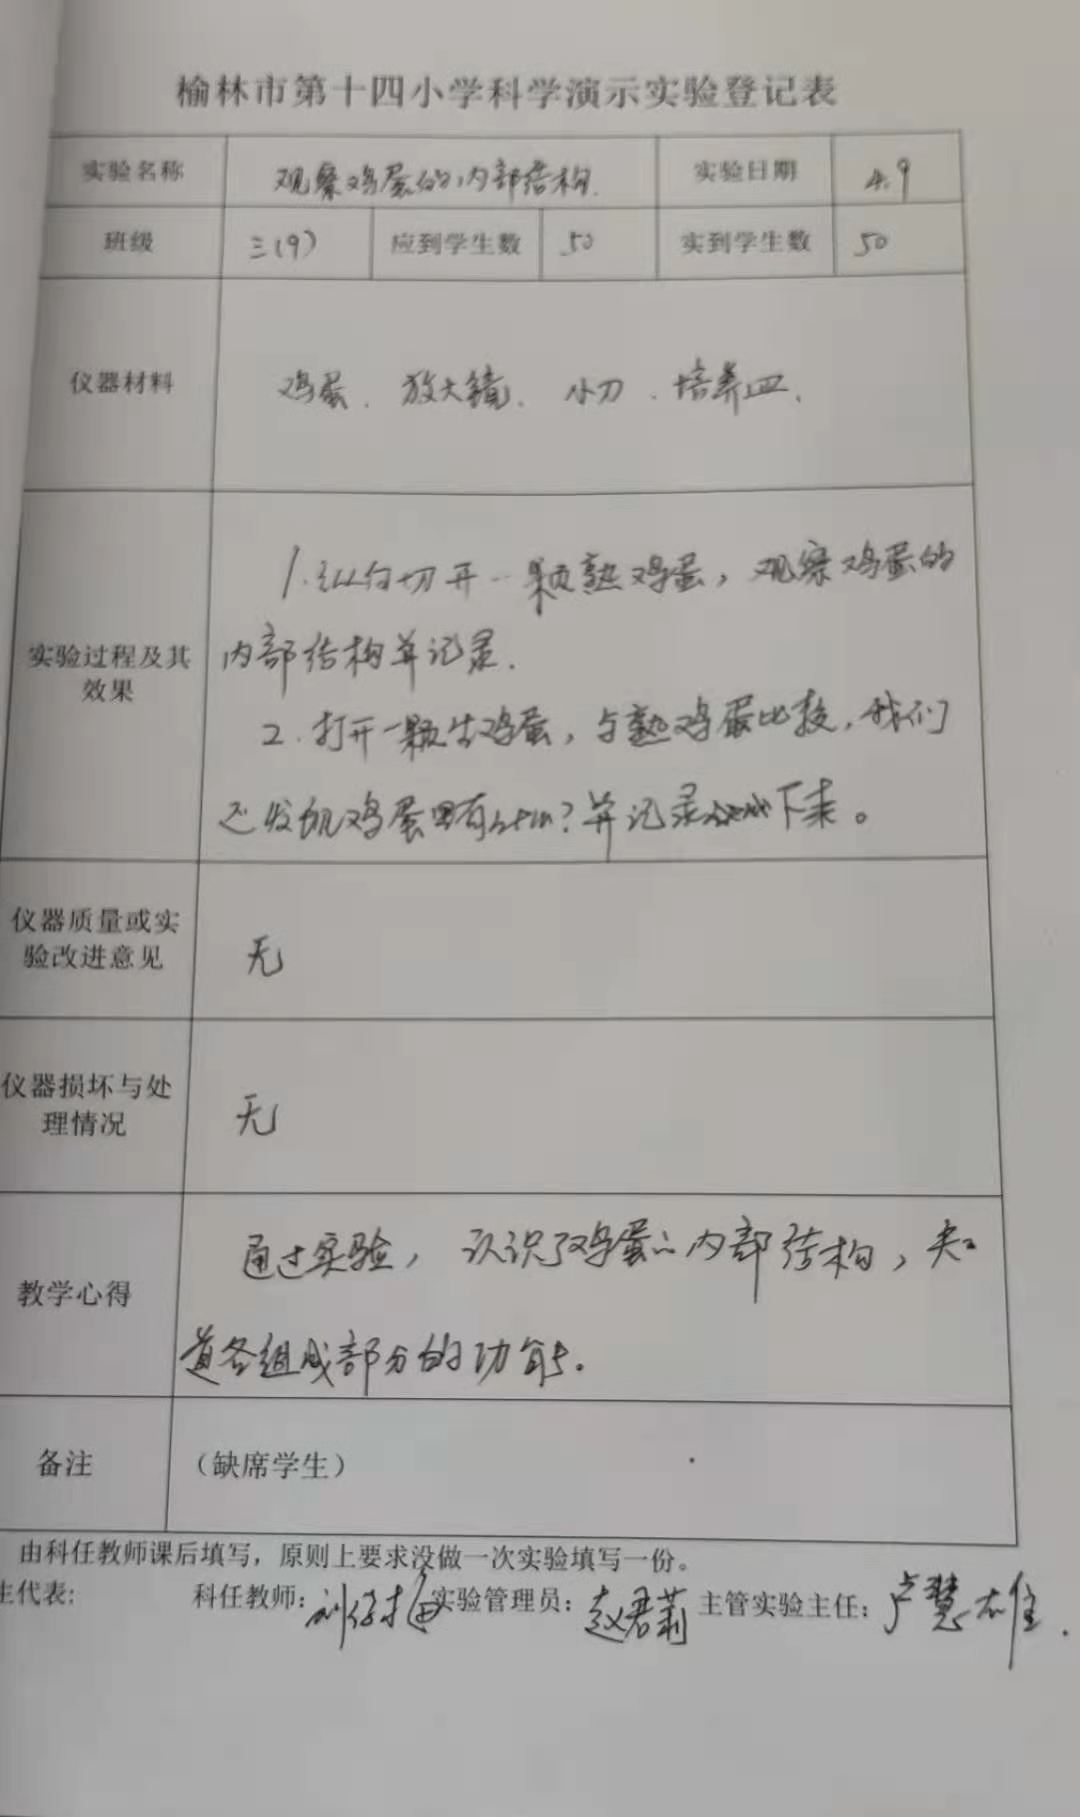 榆林市第十四小学科学演示实验登记表
实验名称 观察鸡蛋的内部结构. 实验日期 4.9
班级 三(9) 应到学生数 50 实到学生数 50
仪器材料 鸡蛋、放大镜、小刀、培养皿、
1.纵向切开一颗熟鸡蛋，观察鸡蛋的
实验过程及其
效果
内部结构并记录.
2.打开一颗生鸡蛋，与熟鸡蛋比较，我们
还发现鸡蛋里有什么？并记录下来。
仪器质量或实
验改进意见
无
仪器损坏与处
理情况
无
教学心得
通过实验，认识了鸡蛋的内部结构，知
道各组成部分的功能。
备注 （缺席学生）
由科任教师课后填写，原则上要求没做一次实验填写一份。
生代表: 科任教师: 实验管理员: 赵君莉 主管实验主任: 卢慧雄